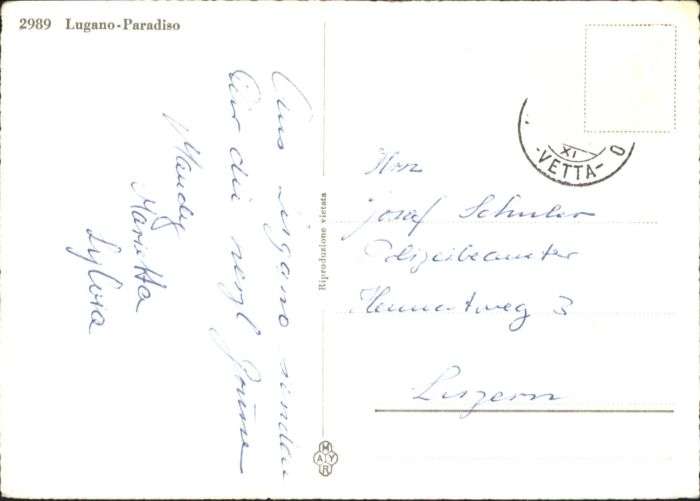 2989 Lugano-Paradiso
Aus Lugano senden
wir die herzl Grüsse
Mandy
Marietta
Sylvia
Riproduzione vietata
MAYR
XI
-VETTA- O
Hrn
Josef Schuler
Polizeibeamter
Heimatweg 3
Luzern